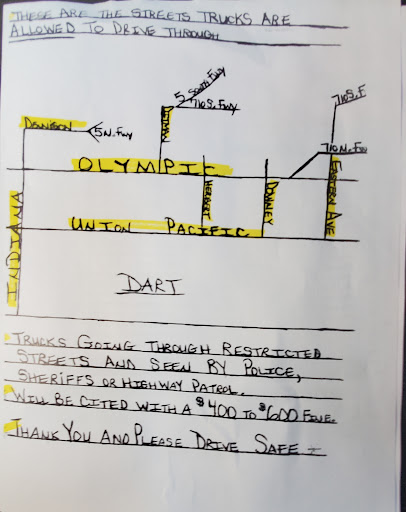 THESE ARE THE STREETS TRUCKS ARE
ALLOWED TO DRIVE THROUGH
5 SOUTH FWY
710 S. FWY
710 S. F
DENNISON
5 N. FWY
DITMAN
710 N. FWY
OLYMPIC
INDIANA
HERBERT
DOWNEY
EASTERN AVE
UNION PACIFIC
DART
TRUCKS GOING THROUGH RESTRICTED
STREETS AND SEEN BY POLICE,
SHERIFFS OR HIGHWAY PATROL.
WILL BE CITED WITH A $400 TO $600 FINE.
THANK YOU AND PLEASE DRIVE SAFE